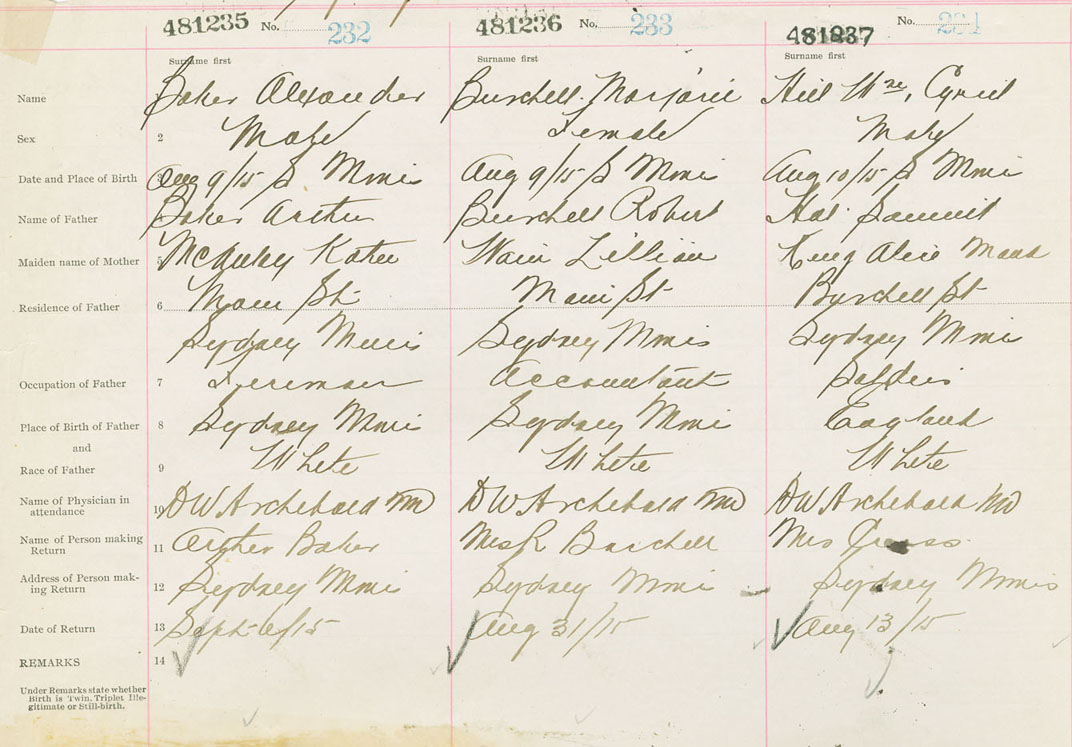 481235 No. 232 481236 No. 233 481237 No. 234
Surname first Surname first Surname first
Name Baker Alexander Burchell Marjorie Hill Wm, Cyril
Sex 2 Male Female Male
Date and Place of Birth 3 Aug 9/15 S Mines Aug 9/15 S Mines Aug 10/15 S Mines
Name of Father Baker Arthur Burchell Robert Hill Samuel
Maiden name of Mother 5 McAulay Katie Lillian Alice Maud
Residence of Father 6 Main St Main St Burchell St
Sydney Mines Sydney Mines Sydney Mines
Occupation of Father 7 Fireman Accountant Soldier
Place of Birth of Father 8 Sydney Mines Sydney Mines England
and
Race of Father 9 White White White
Name of Physician in
attendance 10 DW Archibald MD DW Archibald MD DW Archibald MD
Name of Person making
Return 11 Arthur Baker Mrs R Burchell Mrs
Address of Person mak-
ing Return 12 Sydney Mines Sydney Mines Sydney Mines
Date of Return 13 Sept 6/15 Aug 31/15 Aug 13/15
REMARKS 14
Under Remarks state whether
Birth is Twin, Triplet Ille-
gitimate or Still-birth.